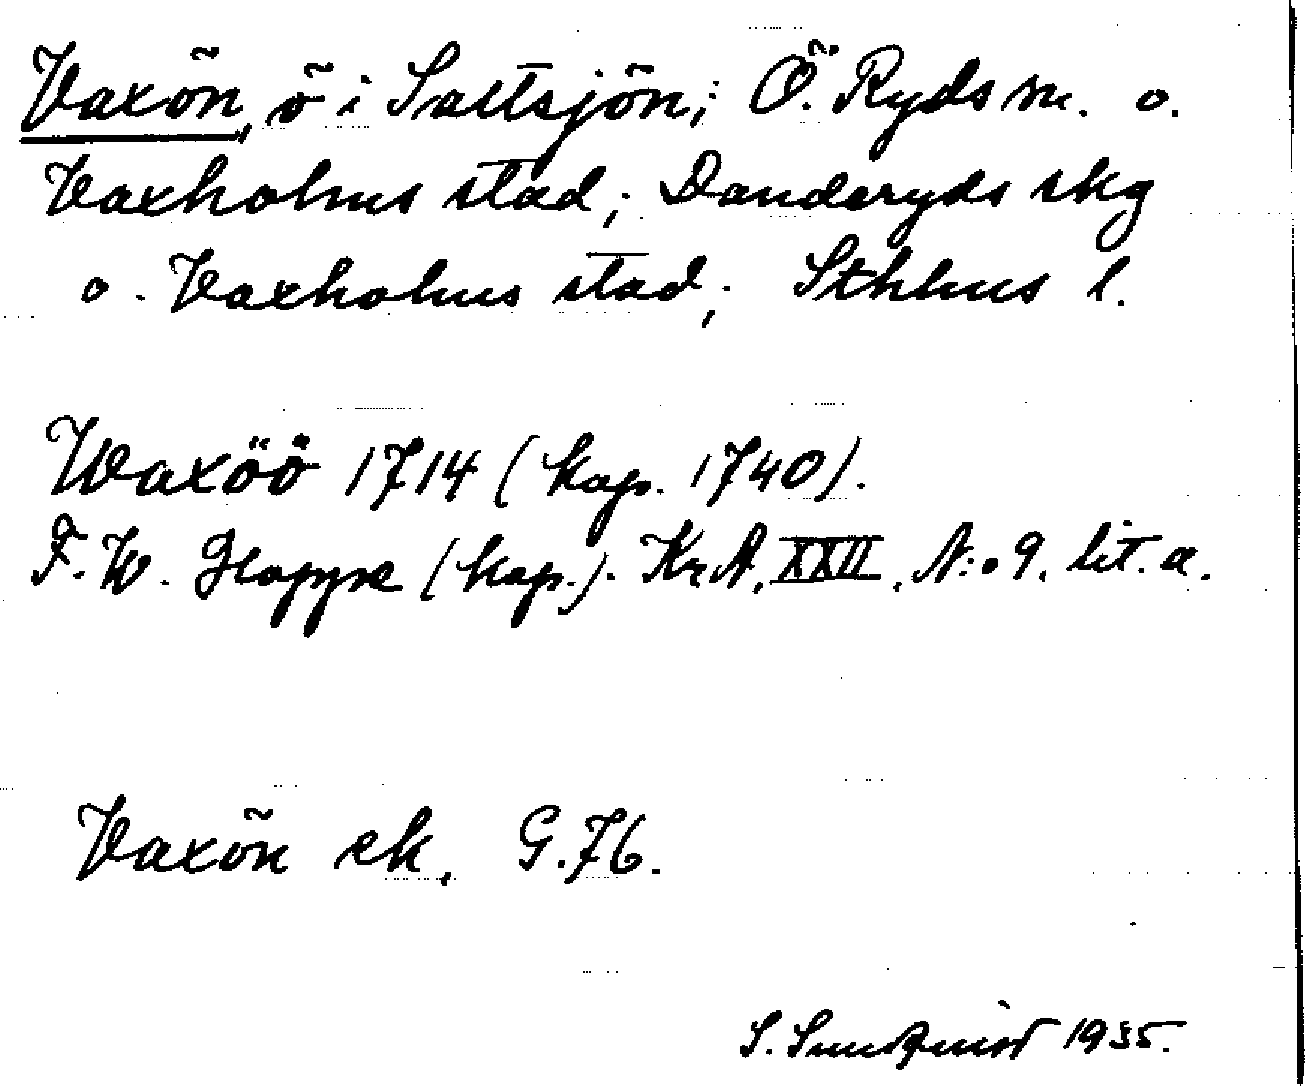 Vaxön, ö i Saltsjön; Ö. Ryds sn. o.
Vaxholms stad; Danderyds skg
o. Vaxholms stad; Sthlms l.
Waxöö 1714 (kop. 1740).
F. W. Hoppe (kop.). Kr A. XXII. N:o 9. lit. a.
Vaxön ek. G. 76.
S. Sundqvist 1935.